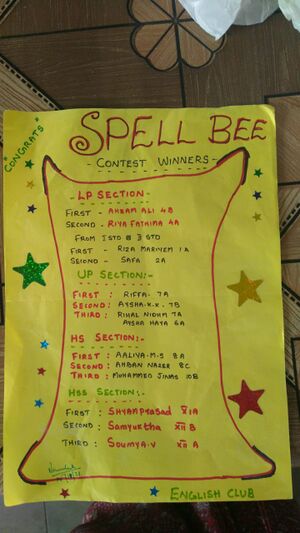 "CONGRATS"
SPELL BEE
- CONTEST WINNERS -
LP SECTION:-
FIRST - AHRAM ALI 4B
SECOND - RIYA FATHIMA 4A
FROM I STD & II STD
FIRST - RIZA MARIYEM 1A
SECOND - SAFA 2A
UP SECTION:-
FIRST : RIFFA 7A
SECOND: AYSHA.K.K. 7B
THIRD : RIHAL NIDHM 7A
AYSHA HAYA 6A
HS SECTION:-
FIRST : AALIYA.M.S 8A
SECOND: AHBAN NAZER 8C
THIRD : MUHAMMED JINAS 10B
HSS SECTION:-
FIRST : SHYAMPRASAD XI A
SECOND : Samyuktha XII B
THIRD : Soumya.V XII A
ENGLISH CLUB